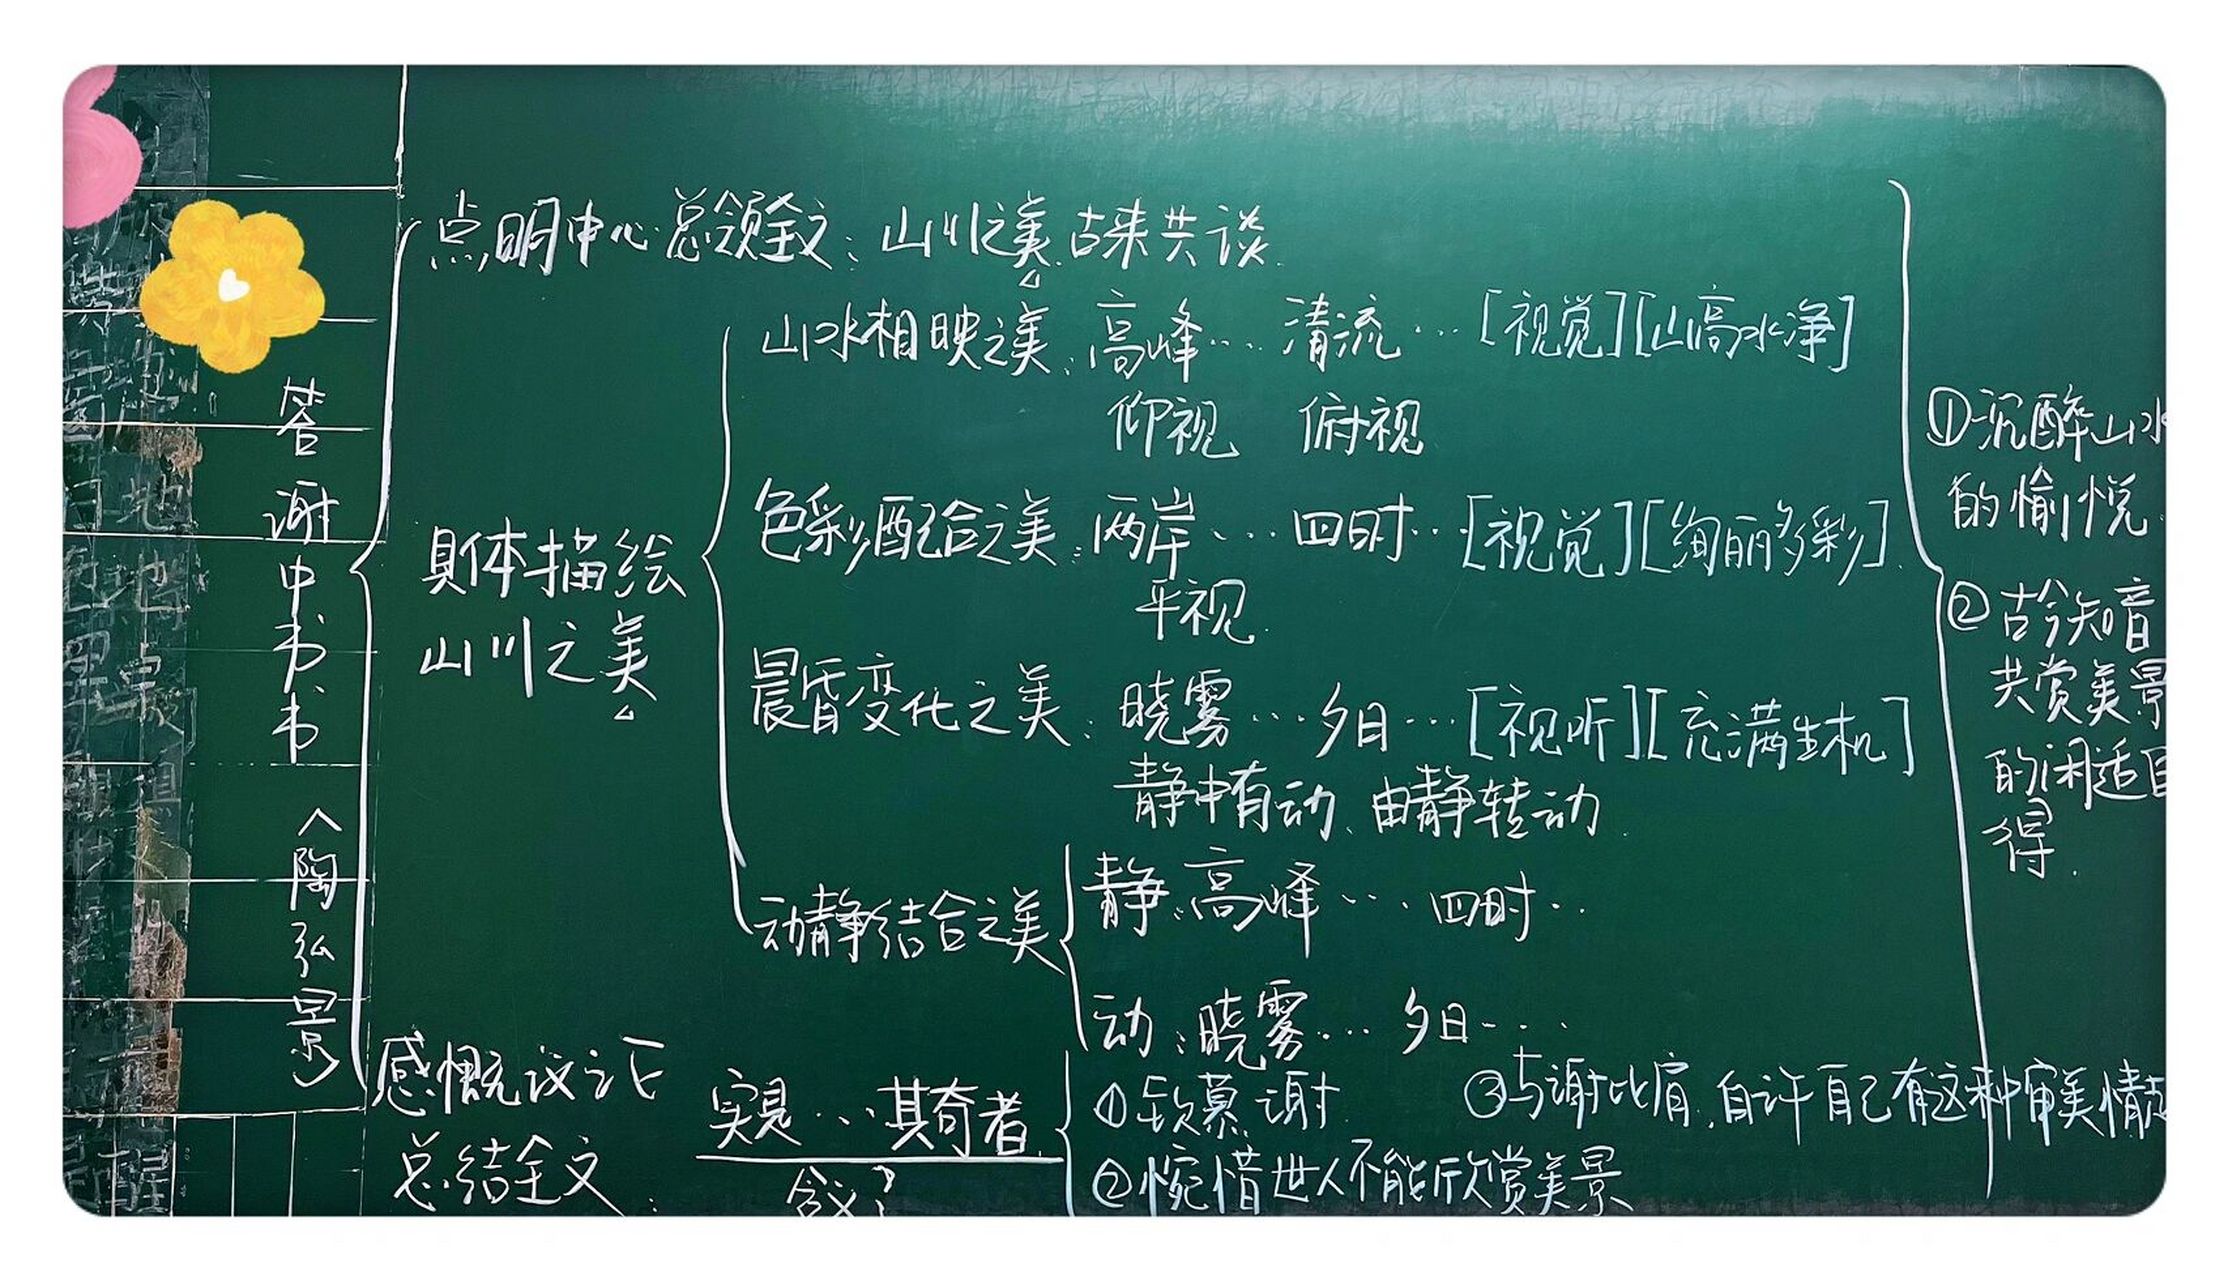 答谢中书书
《陶弘景》
点明中心总领全文：山川之美，古来共谈
具体描绘
山川之美
山水相映之美：高峰… 清流…[视觉][山高水净]
仰视 俯视
色彩配合之美：两岸… 四时…[视觉][绚丽多彩]
平视
晨昏变化之美：晓雾…夕日…[视听][充满生机]
静中有动、由静转动
动静结合之美
静：高峰… 四时…
动：晓雾… 夕日…
感慨议论
总结全文：
实是…其奇者
含义？
①钦慕谢
②惋惜世人不能欣赏美景
③与谢比肩，自许自己有这种审美情趣
①沉醉山水
的愉悦
②古今知音
共赏美景
的闲适自
得